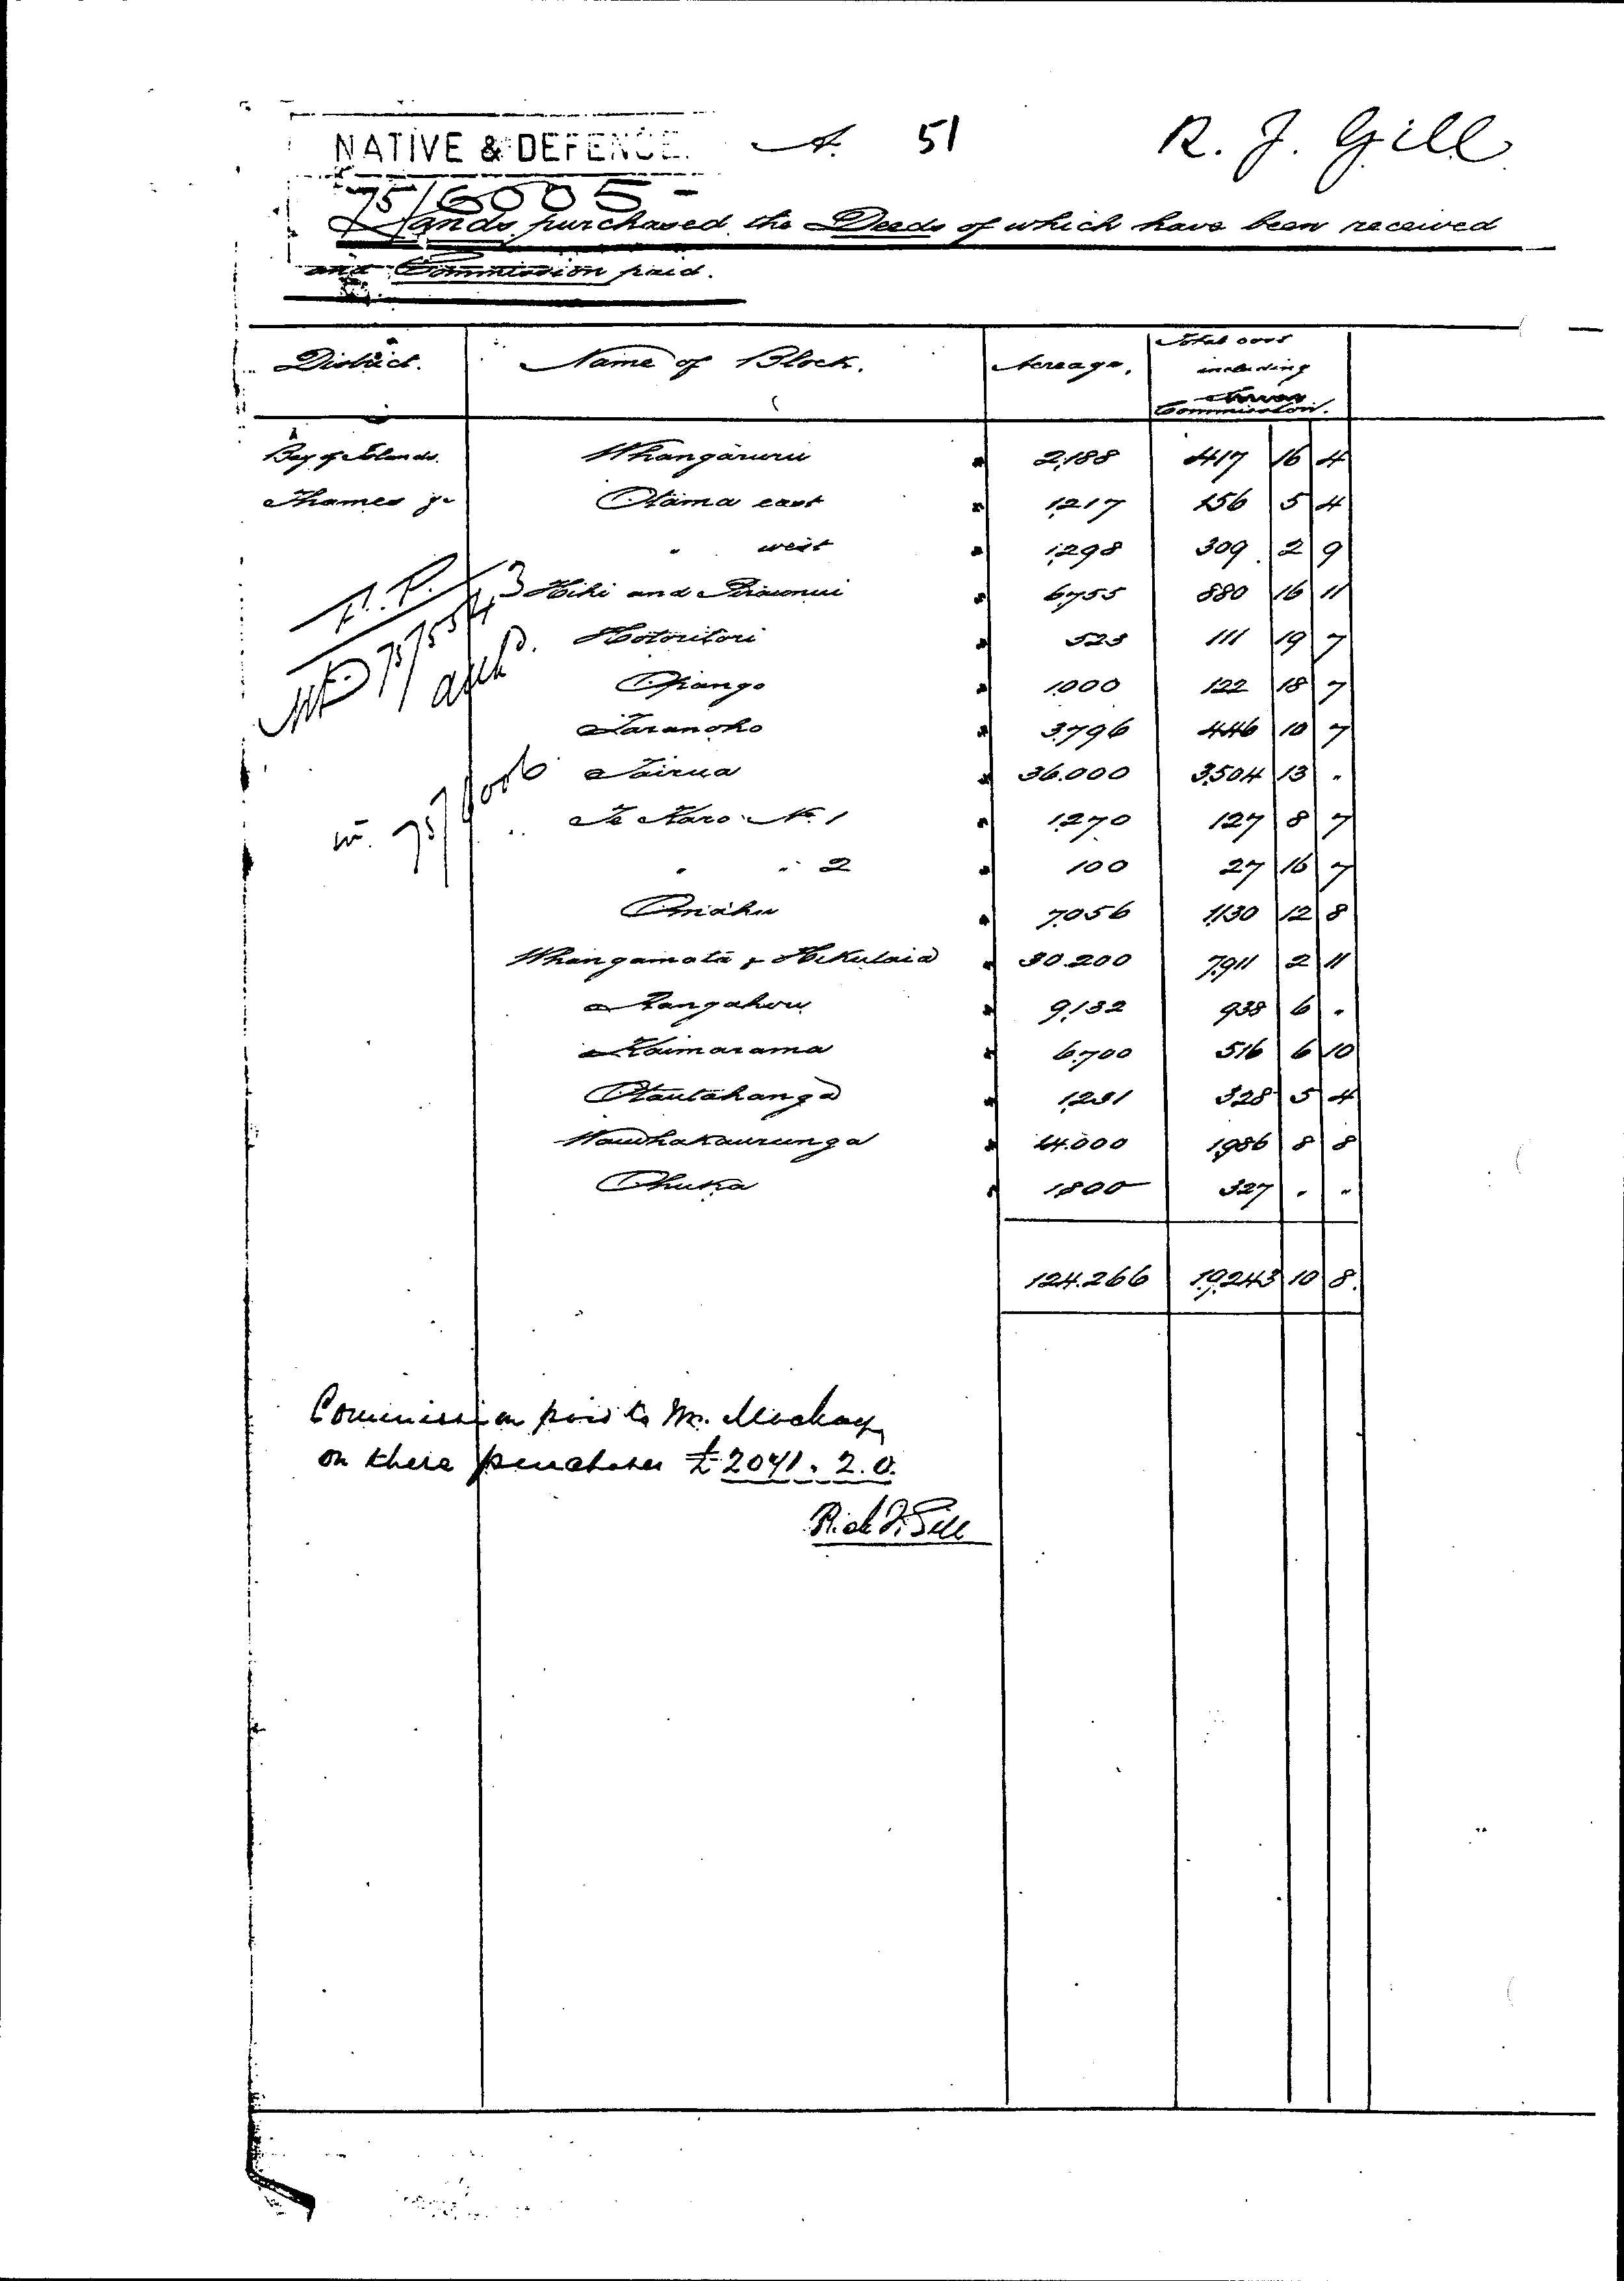 NATIVE & DEFENCE. A. 51 R. J. Gill
75/6005 -
Lands purchased the Deeds of which have been received
and Commission paid.
District. Name of Block. Acreage. Total cost
including
Commission.
Bay of Islands. Whangaruru 2,188 417 16 4
Thames Otama east 1,217 156 5 4
" west 1,298 309 2 9
Hihi and Piraunui 6,755 880 16 11
Hotoritori 523 111 19 7
Opango 1,000 122 18 7
Taranoho 3,796 446 10 7
Tairua 36.000 3,504 13 "
Te Karo No. 1 1,270 127 8 7
" " 2 100 27 16 7
Omahu 7,056 1,130 12 8
Whangamata & Hikutaia 30.200 7,911 2 11
Rangahou 9,132 938 6 "
Kaimarama 6,700 516 6 10
Otautahanga 1,231 328 5 4
Wauwhakaurunga 14.000 1,986 8 8
Ohuka 1800 327 " "
124.266 19,243 10 8.
Commission paid to Mr. Mackay
on these purchases £2041. 2. 0.
Rich J. Gill